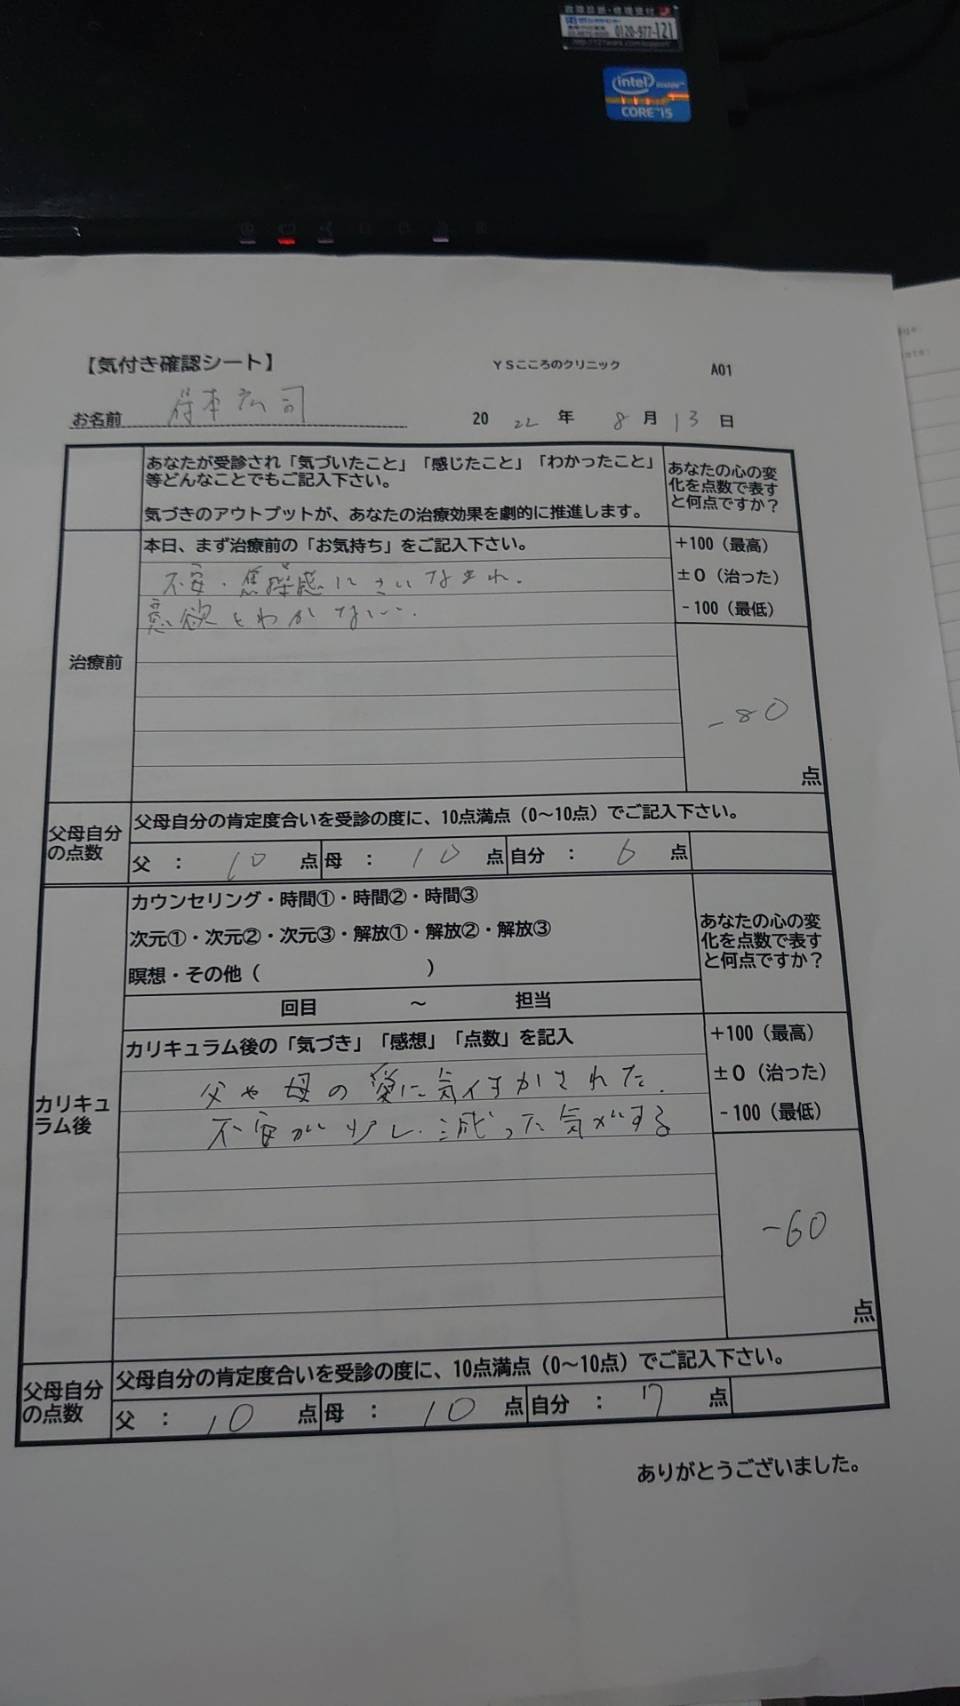 故障診断・修理受付
0120-977-121
http://121ware.com/support/
intel inside™
CORE™i5
【気付き確認シート】
YSこころのクリニック
A01
お名前 岸本弘司
2022年 8月 13日
あなたが受診され「気づいたこと」「感じたこと」「わかったこと」
等どんなことでもご記入下さい。
気づきのアウトプットが、あなたの治療効果を劇的に推進します。
あなたの心の変
化を点数で表す
と何点ですか？
治療前
本日、まず治療前の「お気持ち」をご記入下さい。
不安・焦燥感にさいなまれ、
意欲もわかない。
+100（最高）
±0（治った）
-100（最低）
-80
点
父母自分
の点数
父母自分の肯定度合いを受診の度に、10点満点（0～10点）でご記入下さい。
父 ： 10 点 母 ： 10 点 自分 ： 6 点
カリキュ
ラム後
カウンセリング・時間①・時間②・時間③
次元①・次元②・次元③・解放①・解放②・解放③
瞑想・その他（ ）
回目 ～ 担当
あなたの心の変
化を点数で表す
と何点ですか？
カリキュラム後の「気づき」「感想」「点数」を記入
父や母の愛に気付かされた。
不安が少し減った気がする
+100（最高）
±0（治った）
-100（最低）
-60
点
父母自分
の点数
父母自分の肯定度合いを受診の度に、10点満点（0～10点）でご記入下さい。
父 ： 10 点 母 ： 10 点 自分 ： 7 点
ありがとうございました。